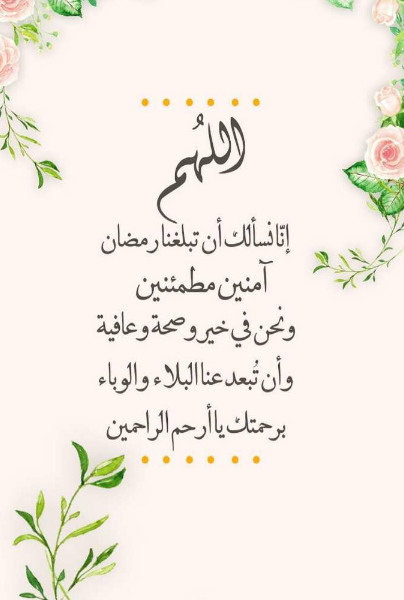 اللهُم
إنّا نسألك أن تبلغنا رمضان
آمنين مطمئنين
ونحن في خير وصحة وعافية
وأن تُبعد عنا البلاء والوباء
برحمتك يا أرحم الراحمين